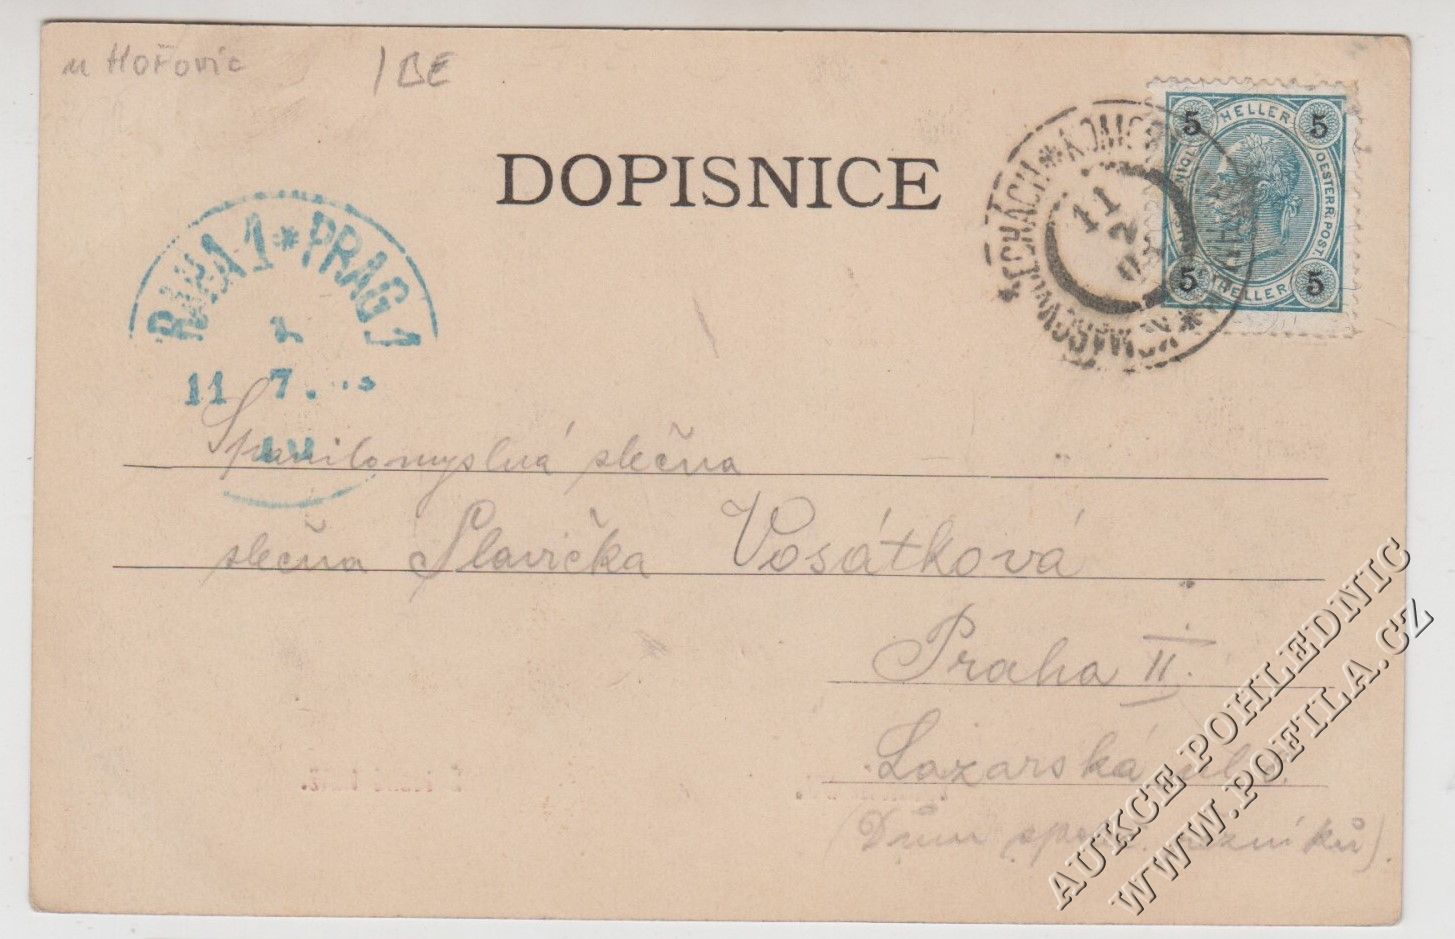 u Hořovic
/BE
DOPISNICE
PRAHA 1 * PRAG 1
11 7.
11
2
5 HELLER 5
OESTERR. POST.
5 HELLER 5
Spanilomyslná slečna
slečna Slavička Vosátková
Praha II.
Lazarská ul.
(Dům spol. řezníků).
AUKCE POHLEDNIC
WWW.POFILA.CZ